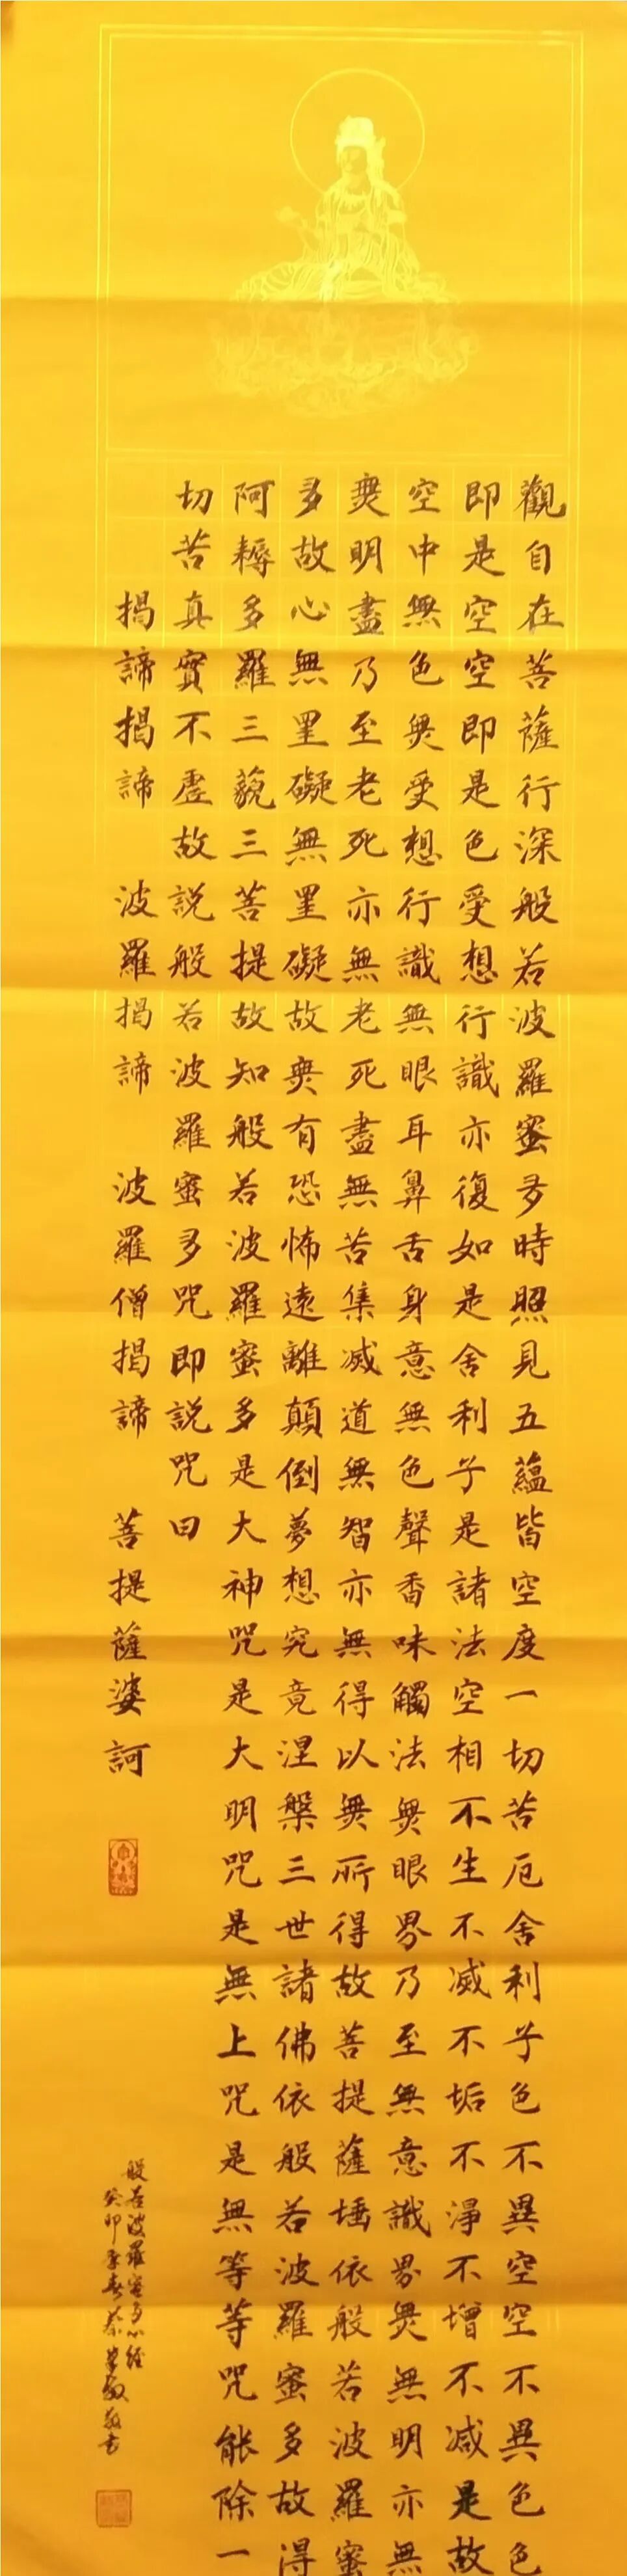 觀自在菩薩行深般若波羅蜜多時照見五蘊皆空度一切苦厄舍利子色不異空空不異色色
即是空空即是色受想行識亦復如是舍利子是諸法空相不生不滅不垢不淨不增不減是故
空中無色無受想行識無眼耳鼻舌身意無色聲香味觸法無眼界乃至無意識界無無明亦無
無明盡乃至老死亦無老死盡無苦集滅道無智亦無得以無所得故菩提薩埵依般若波羅蜜
多故心無罣礙無罣礙故無有恐怖遠離顛倒夢想究竟涅槃三世諸佛依般若波羅蜜多故得
阿耨多羅三藐三菩提故知般若波羅蜜多是大神咒是大明咒是無上咒是無等等咒能除一
切苦真實不虛故說般若波羅蜜多咒即說咒曰
揭諦揭諦 波羅揭諦 波羅僧揭諦 菩提薩婆訶
般若波羅蜜多心經
癸卯季春